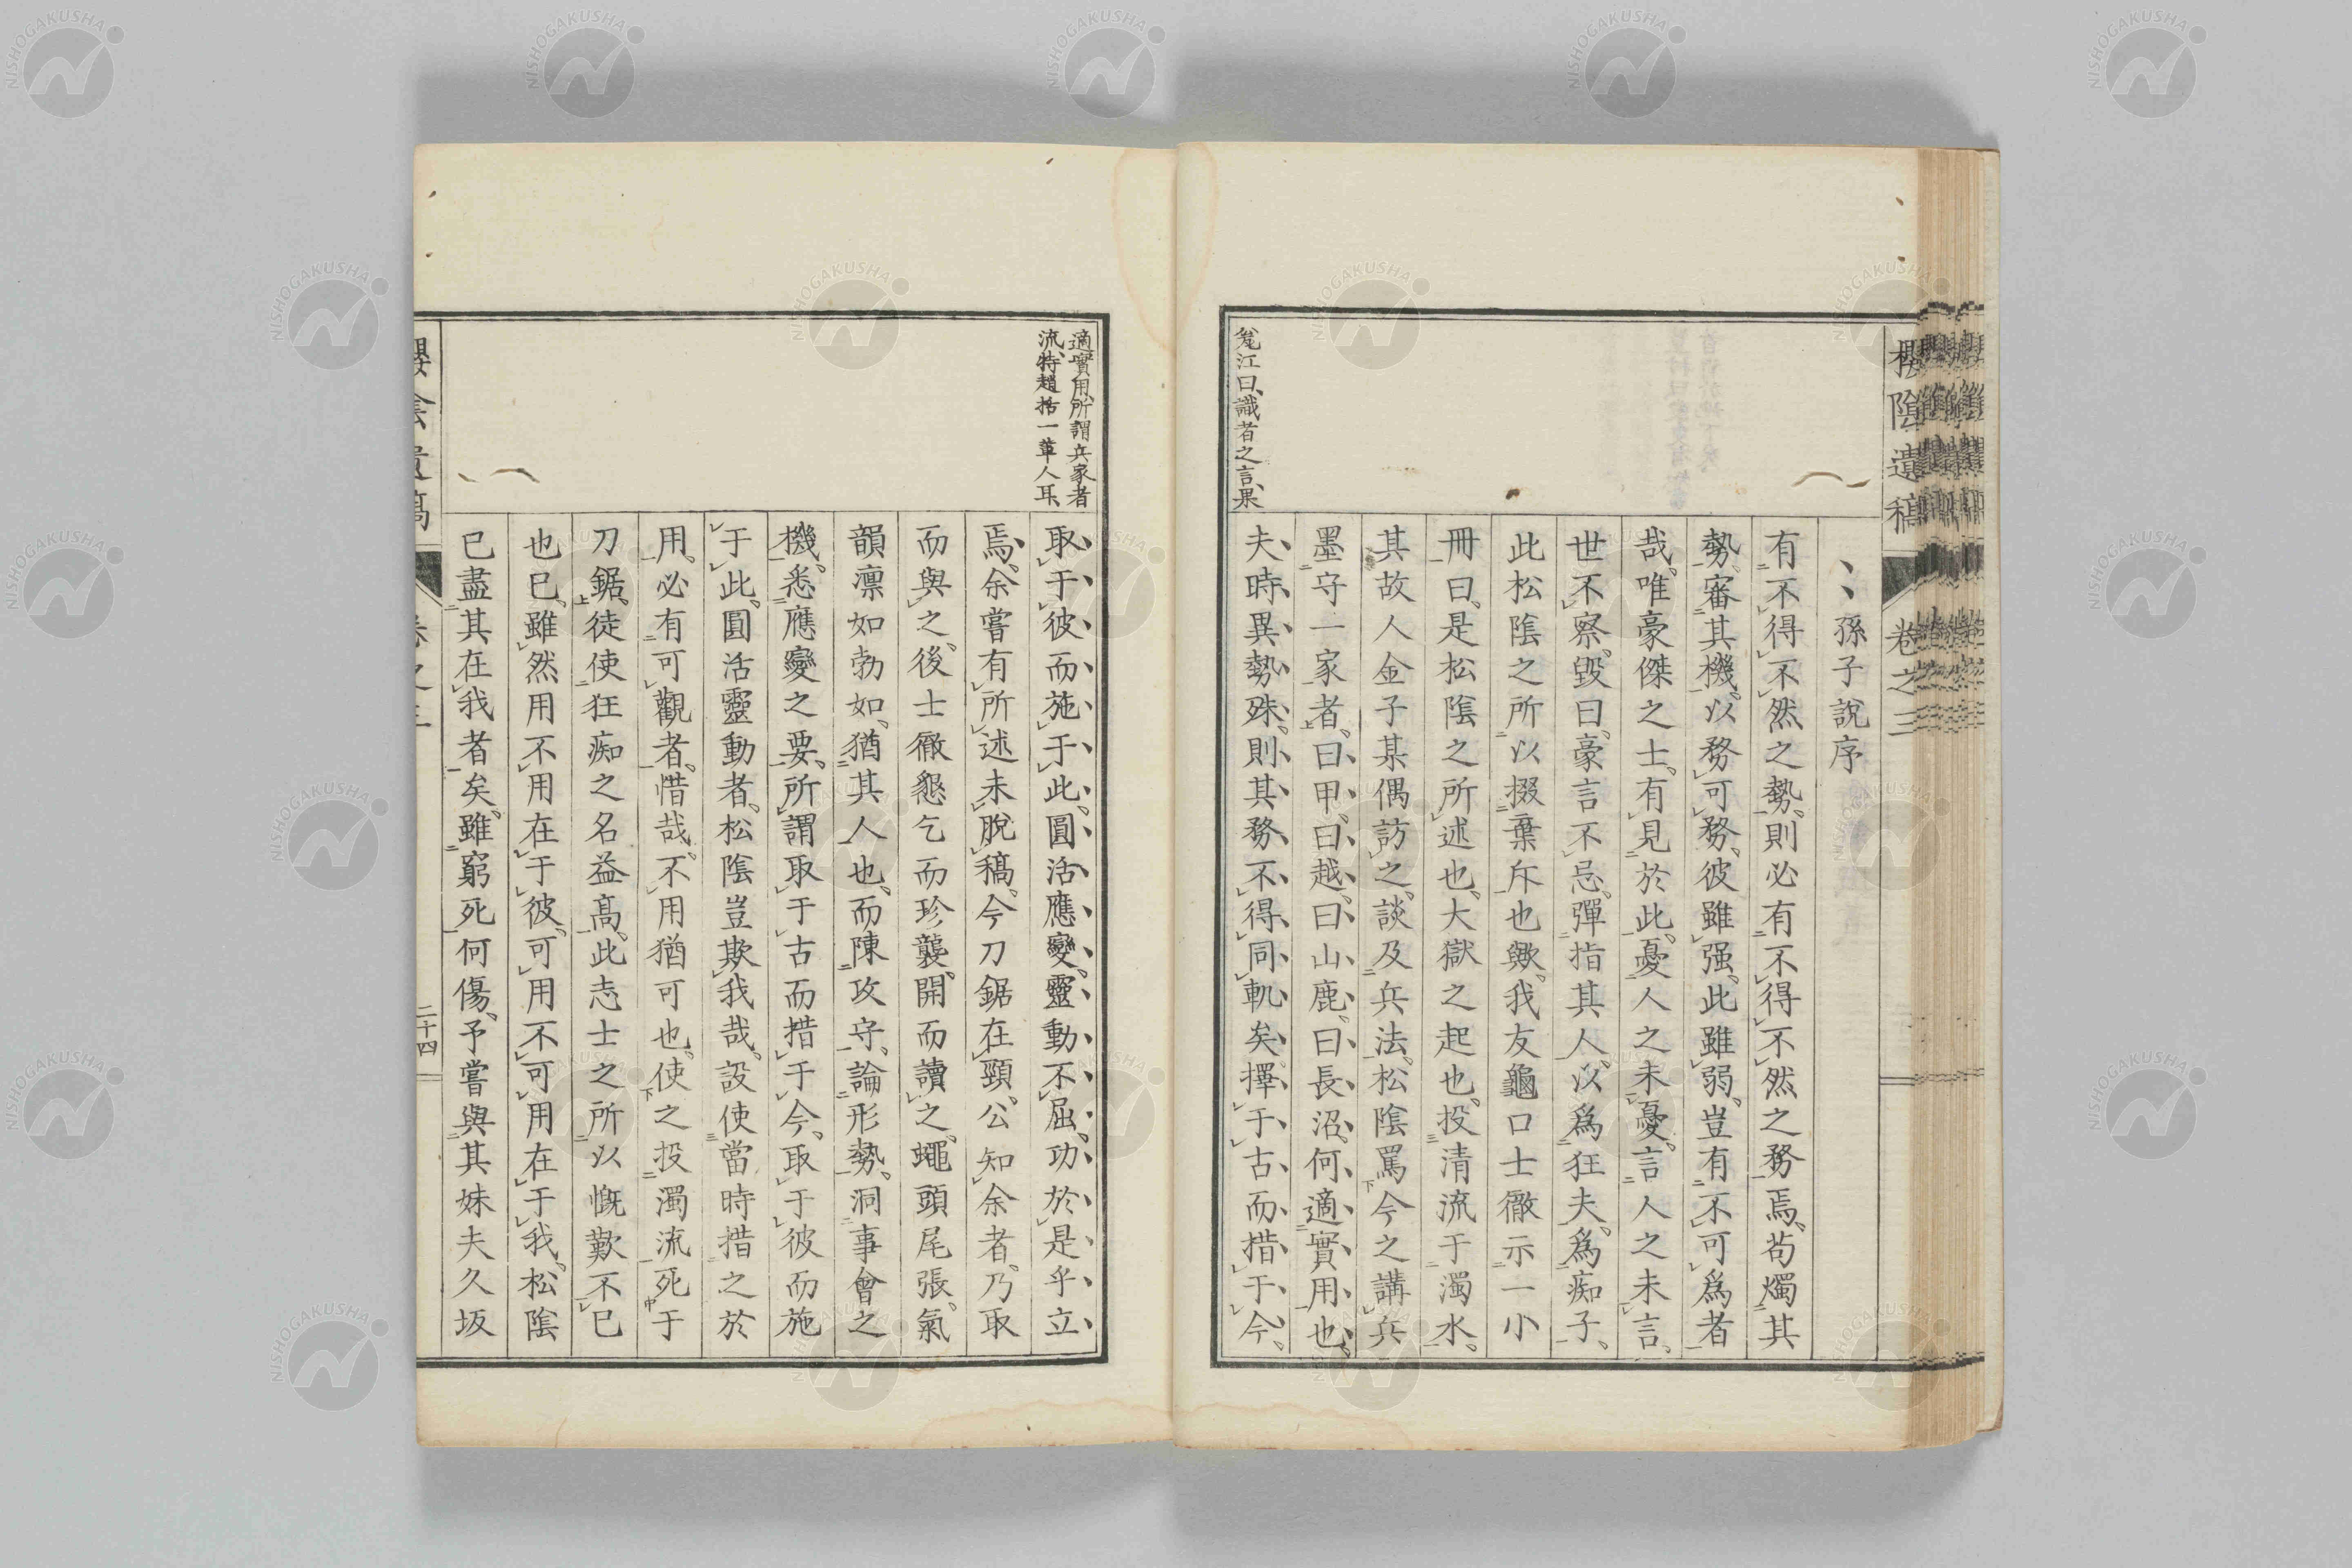 櫻陰遺稿 卷之三
孫子說序
有不得不然之勢、則必有不得不然之務焉、苟燭其
勢、審其機、以務可務、彼雖强、此雖弱、豈有不可爲者
哉、唯豪傑之士、有見於此、憂人之未憂、言人之未言、
世不察、毀曰、豪言不忌、彈指其人、以爲狂夫、爲痴子、
此松陰之所以掇棄斥也歟、我友龜口士徹示一小
冊曰、是松陰之所述也、大獄之起也、投清流于濁水、
其故人金子某偶訪之、談及兵法、松陰罵今之講兵
墨守一家者、曰甲、曰越、曰山鹿、曰長沼、何適實用也、
夫時異勢殊、則其務不得同軌矣、擇于古而措于今、
江曰、識者之言、果
適實用、所謂兵家者
流、特趙括一輩人耳、
取于彼而施于此、圓活應變、靈動不屈、功於是乎立
焉、余嘗有所述未脫稿、今刀鋸在頸、公知余者、乃取
而與之、後士徹懇乞而珍襲、開而讀之、蠅頭尾張、氣
韻凛如勃如、猶其人也、而陳攻守、論形勢、洞事會之
機、悉應變之要、所謂取于古而措于今、取于彼而施
于此、圓活靈動者、松陰豈欺我哉、設使當時措之於
用、必有可觀者、惜哉、不用猶可也、使之投濁流死于
刀鋸、徒使狂痴之名益高、此志士之所以慨歎不已
也已、雖然用不用在于彼、可用不可用在于我、松陰
已盡其在我者矣、雖窮死何傷、予嘗與其妹夫久坂
櫻陰遺稿 卷之三 二十四